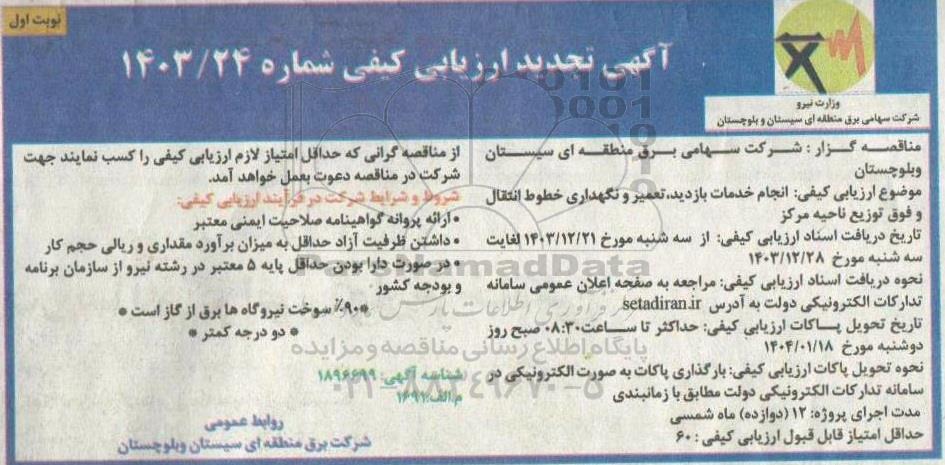 نوبت اول
آگهی تجدید ارزیابی کیفی شماره ۱۴۰۳/۲۴
وزارت نیرو
شرکت سهامی برق منطقه ای سیستان و بلوچستان
مناقصه گزار : شرکت سهامی برق منطقه ای سیستان
وبلوچستان
موضوع ارزیابی کیفی: انجام خدمات بازدید،تعمیر و نگهداری خطوط انتقال
و فوق توزیع ناحیه مرکز
تاریخ دریافت اسناد ارزیابی کیفی: از سه شنبه مورخ ۱۴۰۳/۱۲/۲۱ لغایت
سه شنبه مورخ ۱۴۰۳/۱۲/۲۸
نحوه دریافت اسناد ارزیابی کیفی: مراجعه به صفحه اعلان عمومی سامانه
تدارکات الکترونیکی دولت به آدرس setadiran.ir
تاریخ تحویل پاکات ارزیابی کیفی: حداکثر تا ساعت۰۸:۳۰ صبح روز
دوشنبه مورخ ۱۴۰۴/۰۱/۱۸
نحوه تحویل پاکات ارزیابی کیفی: بارگذاری پاکات به صورت الکترونیکی در
سامانه تدارکات الکترونیکی دولت مطابق با زمانبندی
مدت اجرای پروژه: ۱۲ (دوازده) ماه شمسی
حداقل امتیاز قابل قبول ارزیابی کیفی : ۶۰
از مناقصه گرانی که حداقل امتیاز لازم ارزیابی کیفی را کسب نمایند جهت
شرکت در مناقصه دعوت بعمل خواهد آمد.
شروط و شرایط شرکت در فرآیند ارزیابی کیفی:
• ارائه پروانه گواهینامه صلاحیت ایمنی معتبر
• داشتن ظرفیت آزاد حداقل به میزان برآورد مقداری و ریالی حجم کار
• در صورت دارا بودن حداقل پایه ۵ معتبر در رشته نیرو از سازمان برنامه
و بودجه کشور
*۹۰٪ سوخت نیروگاه ها برق از گاز است *
* دو درجه کمتر *
شناسه آگهی: ۱۸۹۶۶۹۹
م.الف:۱۶۹۱
روابط عمومی
شرکت برق منطقه ای سیستان وبلوچستان
ParsNamadData
پایگاه اطلاع رسانی مناقصه و مزایده
۰۲۱-۸۸۳۴۹۶۷۰-۵